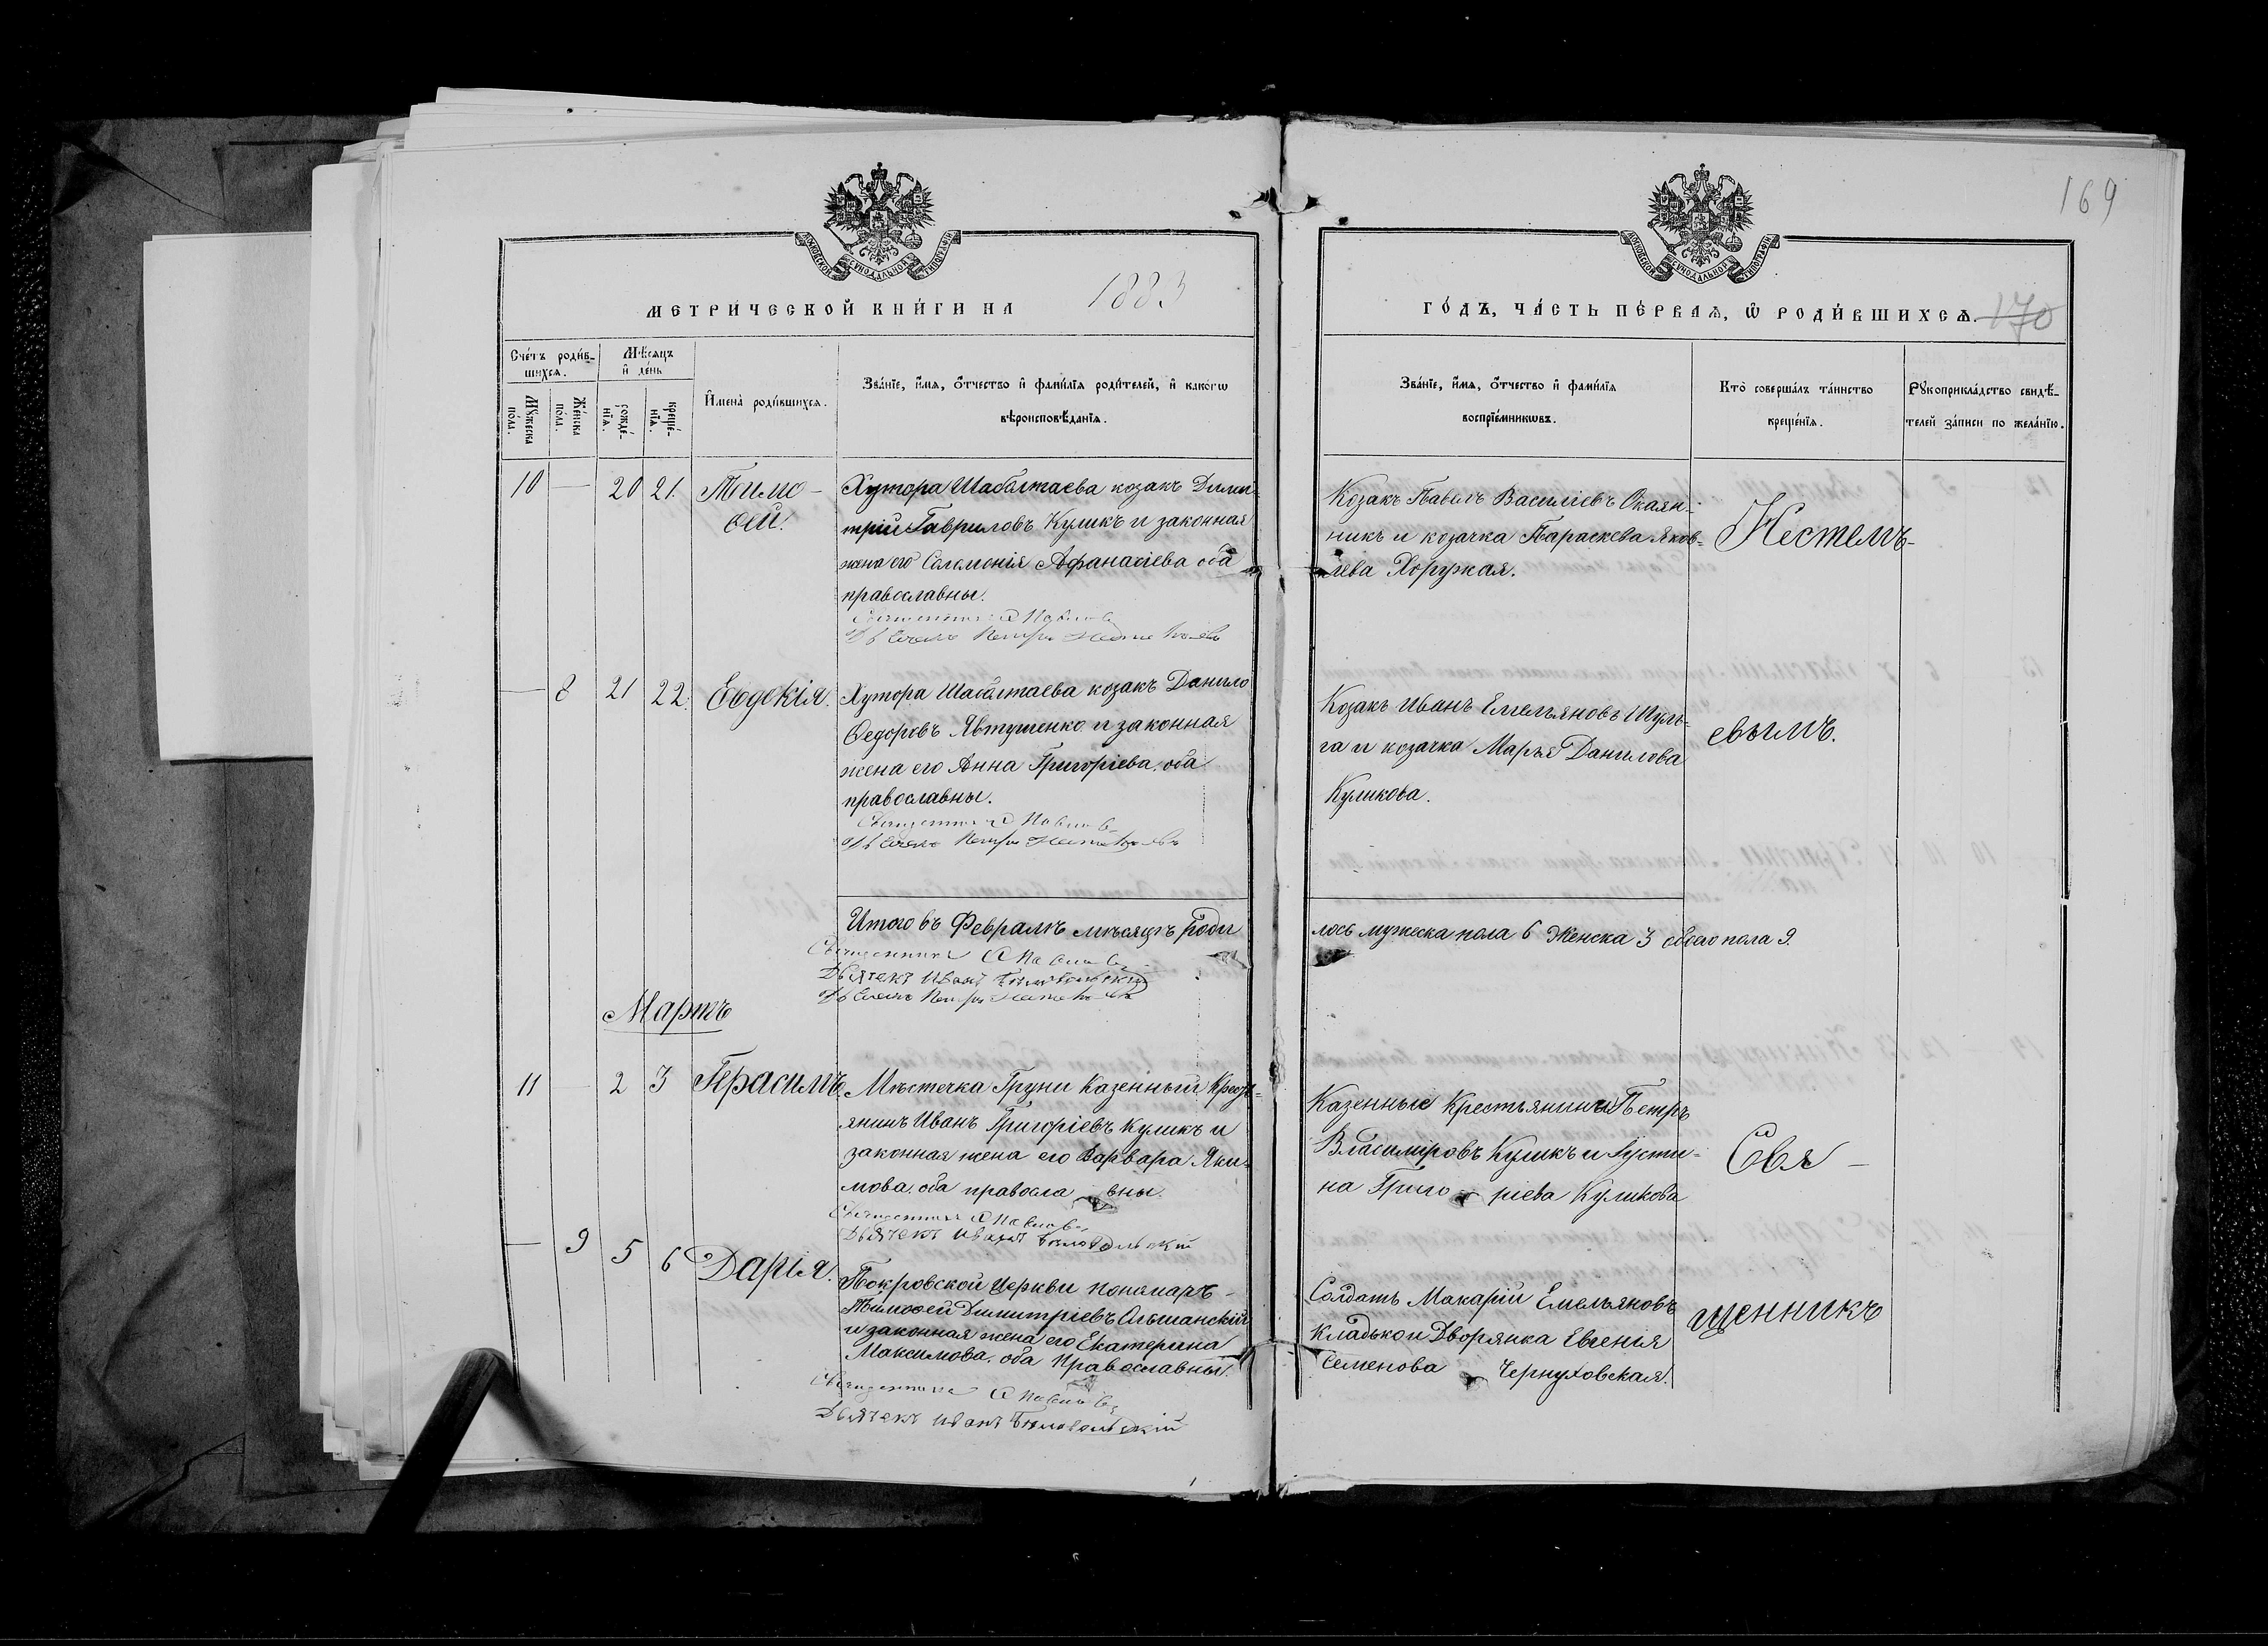 169
МОСКОВСКОЙ СѴНОДАЛЬНОЙ ТИПОГРАФІИ
МОСКОВСКОЙ СѴНОДАЛЬНОЙ ТИПОГРАФІИ
МЕТРИ́ЧЕСКОЙ КНИ́ГИ НА 1883
ГО́ДЪ, ЧА́СТЬ ПЕ́РВАѦ, Ѡ҆ РОДИ́ВШИХСѦ. 170
Сче́тъ роди́в-
шихсѧ.
Мѣ́сѧцъ
и҆ де́нь
Мꙋ́жеска
по́ла.
Же́нска
по́ла.
рожде́-
нїѧ.
креще́-
нїѧ.
И҆мена̀ роди́вшихсѧ.
Зва́нїе, и҆́мѧ, ѻ҆́тчество и҆ фами́лїѧ роди́телей, и҆ како́гѡ
вѣроисповѣ́данїѧ.
Зва́нїе, и҆́мѧ, ѻ҆́тчество и҆ фами́лїѧ
воспрїе́мникѡвъ.
Кто̀ соверша́лъ та́инство
креще́нїѧ.
Рꙋкоприкла́дство свидѣ́-
телей за́писи по жела́нїю.
10 — 20 21. Тимо-
ѳей.
Хутора Шабалтаева козакъ Дими-
трій Гавриловъ Куликъ и законная
жена его Соломонія Афанасіева оба
православны.
Козакъ Павелъ Василіевъ Окаян-
никъ и козачка Параскева Яков-
лева Хоружая.
Нестель-
— 8 21 22. Евдокія.
Хутора Шабалтаева козакъ Данило
Ѳедоровъ Явтушенко и законная
жена его Анна Григоріева, оба
православны.
Козакъ Иванъ Емельяновъ Шуль-
га и козачка Марья Данилова
Куликова.
евымъ.
Итого въ Февралѣ мѣсяцѣ роди
лось мужеска пола 6 Женска 3 обоего пола 9.
Мартъ
11 — 2 3 Герасимъ.
Мѣстечка Груни Казенный Кресть-
янинъ Иванъ Григоріевъ Куликъ и
законная жена его Варвара Яки-
мова. оба православны.
Казенные Крестьянина Петръ
Владиміровъ Куликъ и Іусти-
на Григоріева Куликова
Свя-
— 9 5 6 Дарія.
Покровской Церкви пономарь-
Тимоѳей Димитріевъ Ольшанскій
и законная жена его Екатерина
Максимова. оба Православны.
Солдатъ Макарій Емельяновъ
Кладько и Дворянка Евгенія
Семенова Чернуховская.
щенникъ